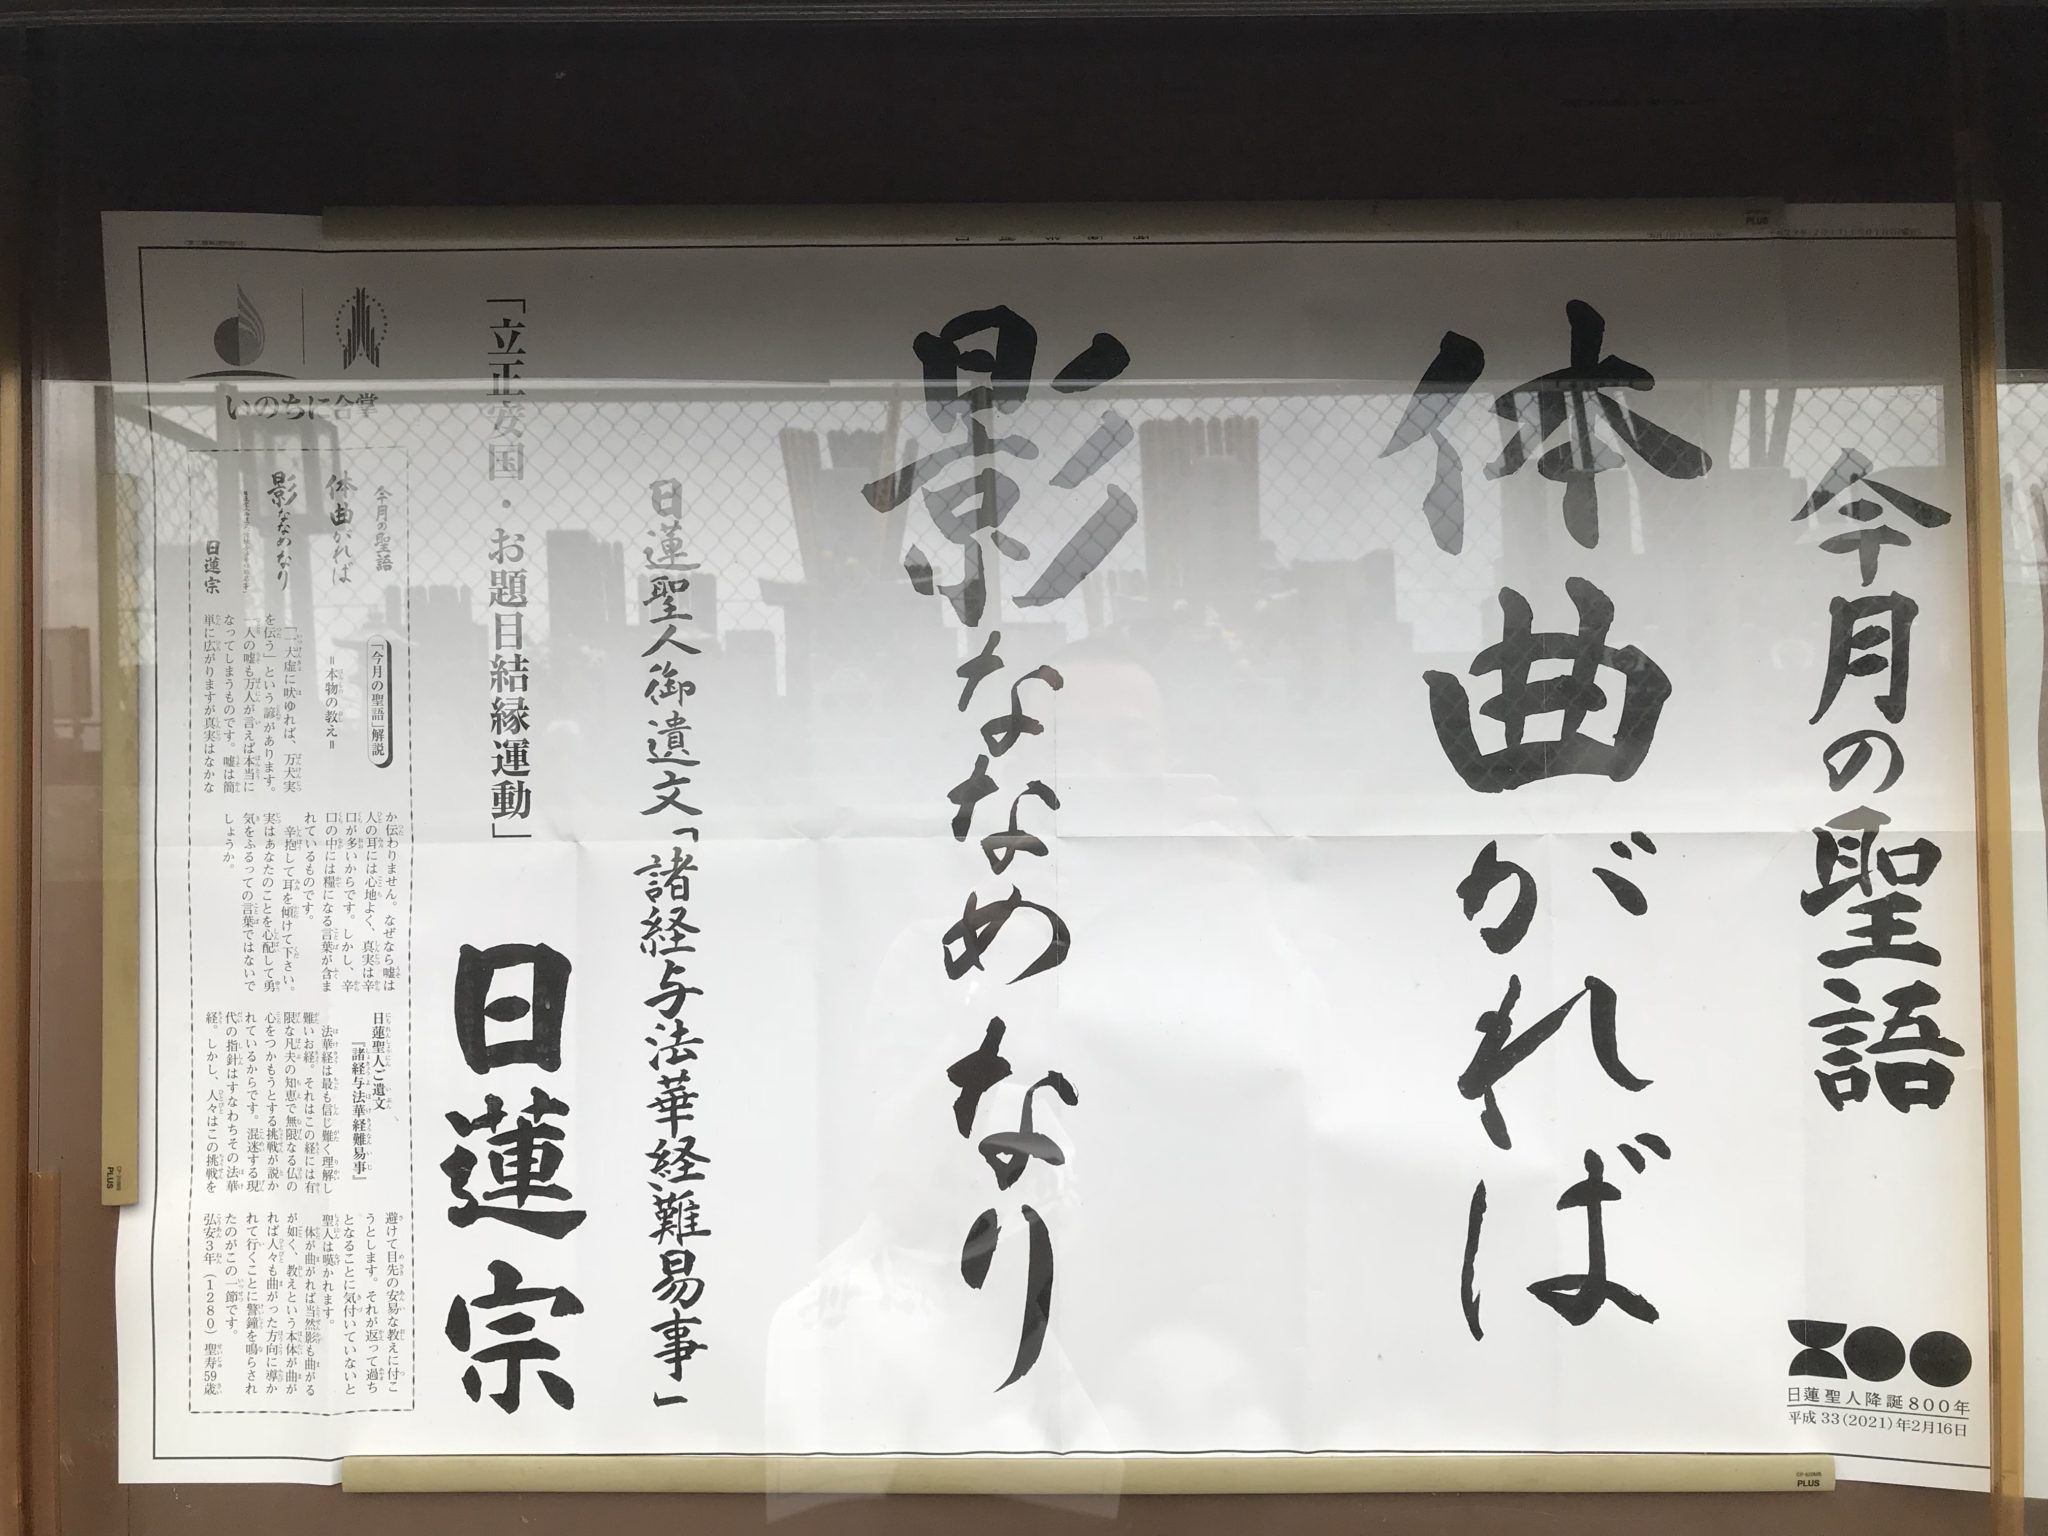 今月の聖語
体曲がれば
影ななめなり
日蓮聖人御遺文「諸経与法華経難易事」
「立正安国・お題目結縁運動」
日蓮宗
800
日蓮聖人降誕800年
平成33(2021)年2月16日
いのちに合掌
今月の聖語
体曲がれば
影ななめなり
日蓮宗
「今月の聖語」解説
＝本物の教え＝
「一犬虚に吠ゆれば、万犬実
を伝う」という諺があります。
一人の嘘も万人が言えば本当に
なってしまうものです。嘘は簡
単に広がりますが真実はなかな
か伝わりません。なぜなら嘘は
人の耳には心地よく、真実は辛
口が多いからです。しかし、辛
口の中には糧になる言葉が含ま
れているものです。
辛抱して耳を傾けて下さい。
実はあなたのことを心配して勇
気をふるっての言葉ではないで
しょうか。
日蓮聖人ご遺文
『諸経与法華経難易事』
法華経は最も信じ難く理解し
難いお経。それはこの経には有
限な凡夫の知恵で無限なる仏の
心をつかもうとする挑戦が説か
れているからです。混迷する現
代の指針はすなわちその法華
経。しかし、人々はこの挑戦を
避けて目先の安易な教えに付こ
うとします。それが返って過ち
となることに気付いていないと
聖人は嘆かれます。
体が曲がれば当然影も曲がる
が如く、教えという本体が曲が
れば人々も曲がった方向に導か
れて行くことに警鐘を鳴らされ
たのがこの一節です。
弘安3年（1280）聖寿59歳
PLUS
PLUS
PLUS